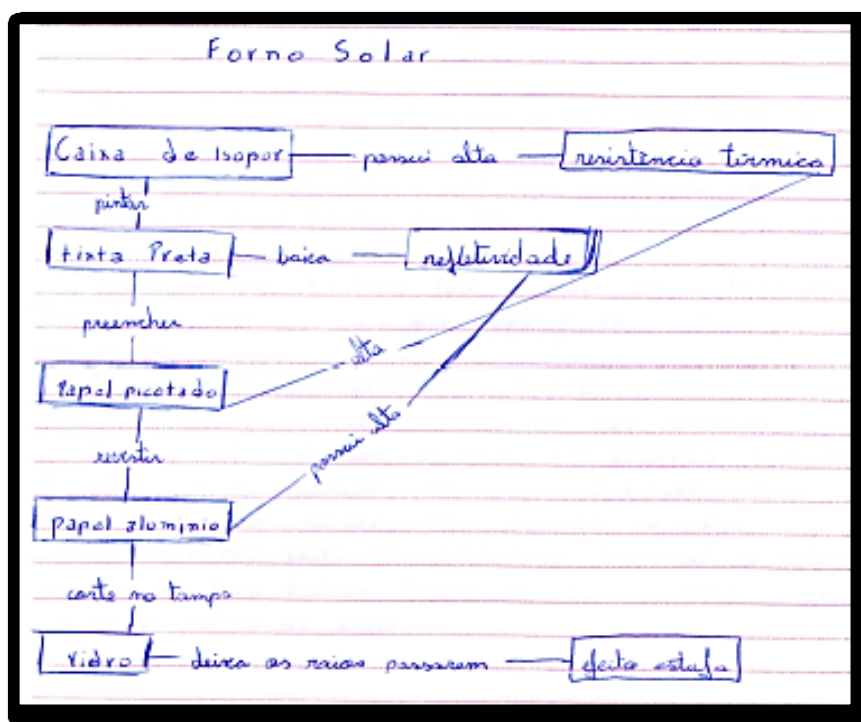 Forno Solar
Caixa de Isopor possui alta resistência térmica
pintar
tinta Preta baixa refletividade
preencher
alta
Papel picotado
possui alta
revestir
papel alumínio
corte na tampa
vidro deixa os raios passarem efeito estufa